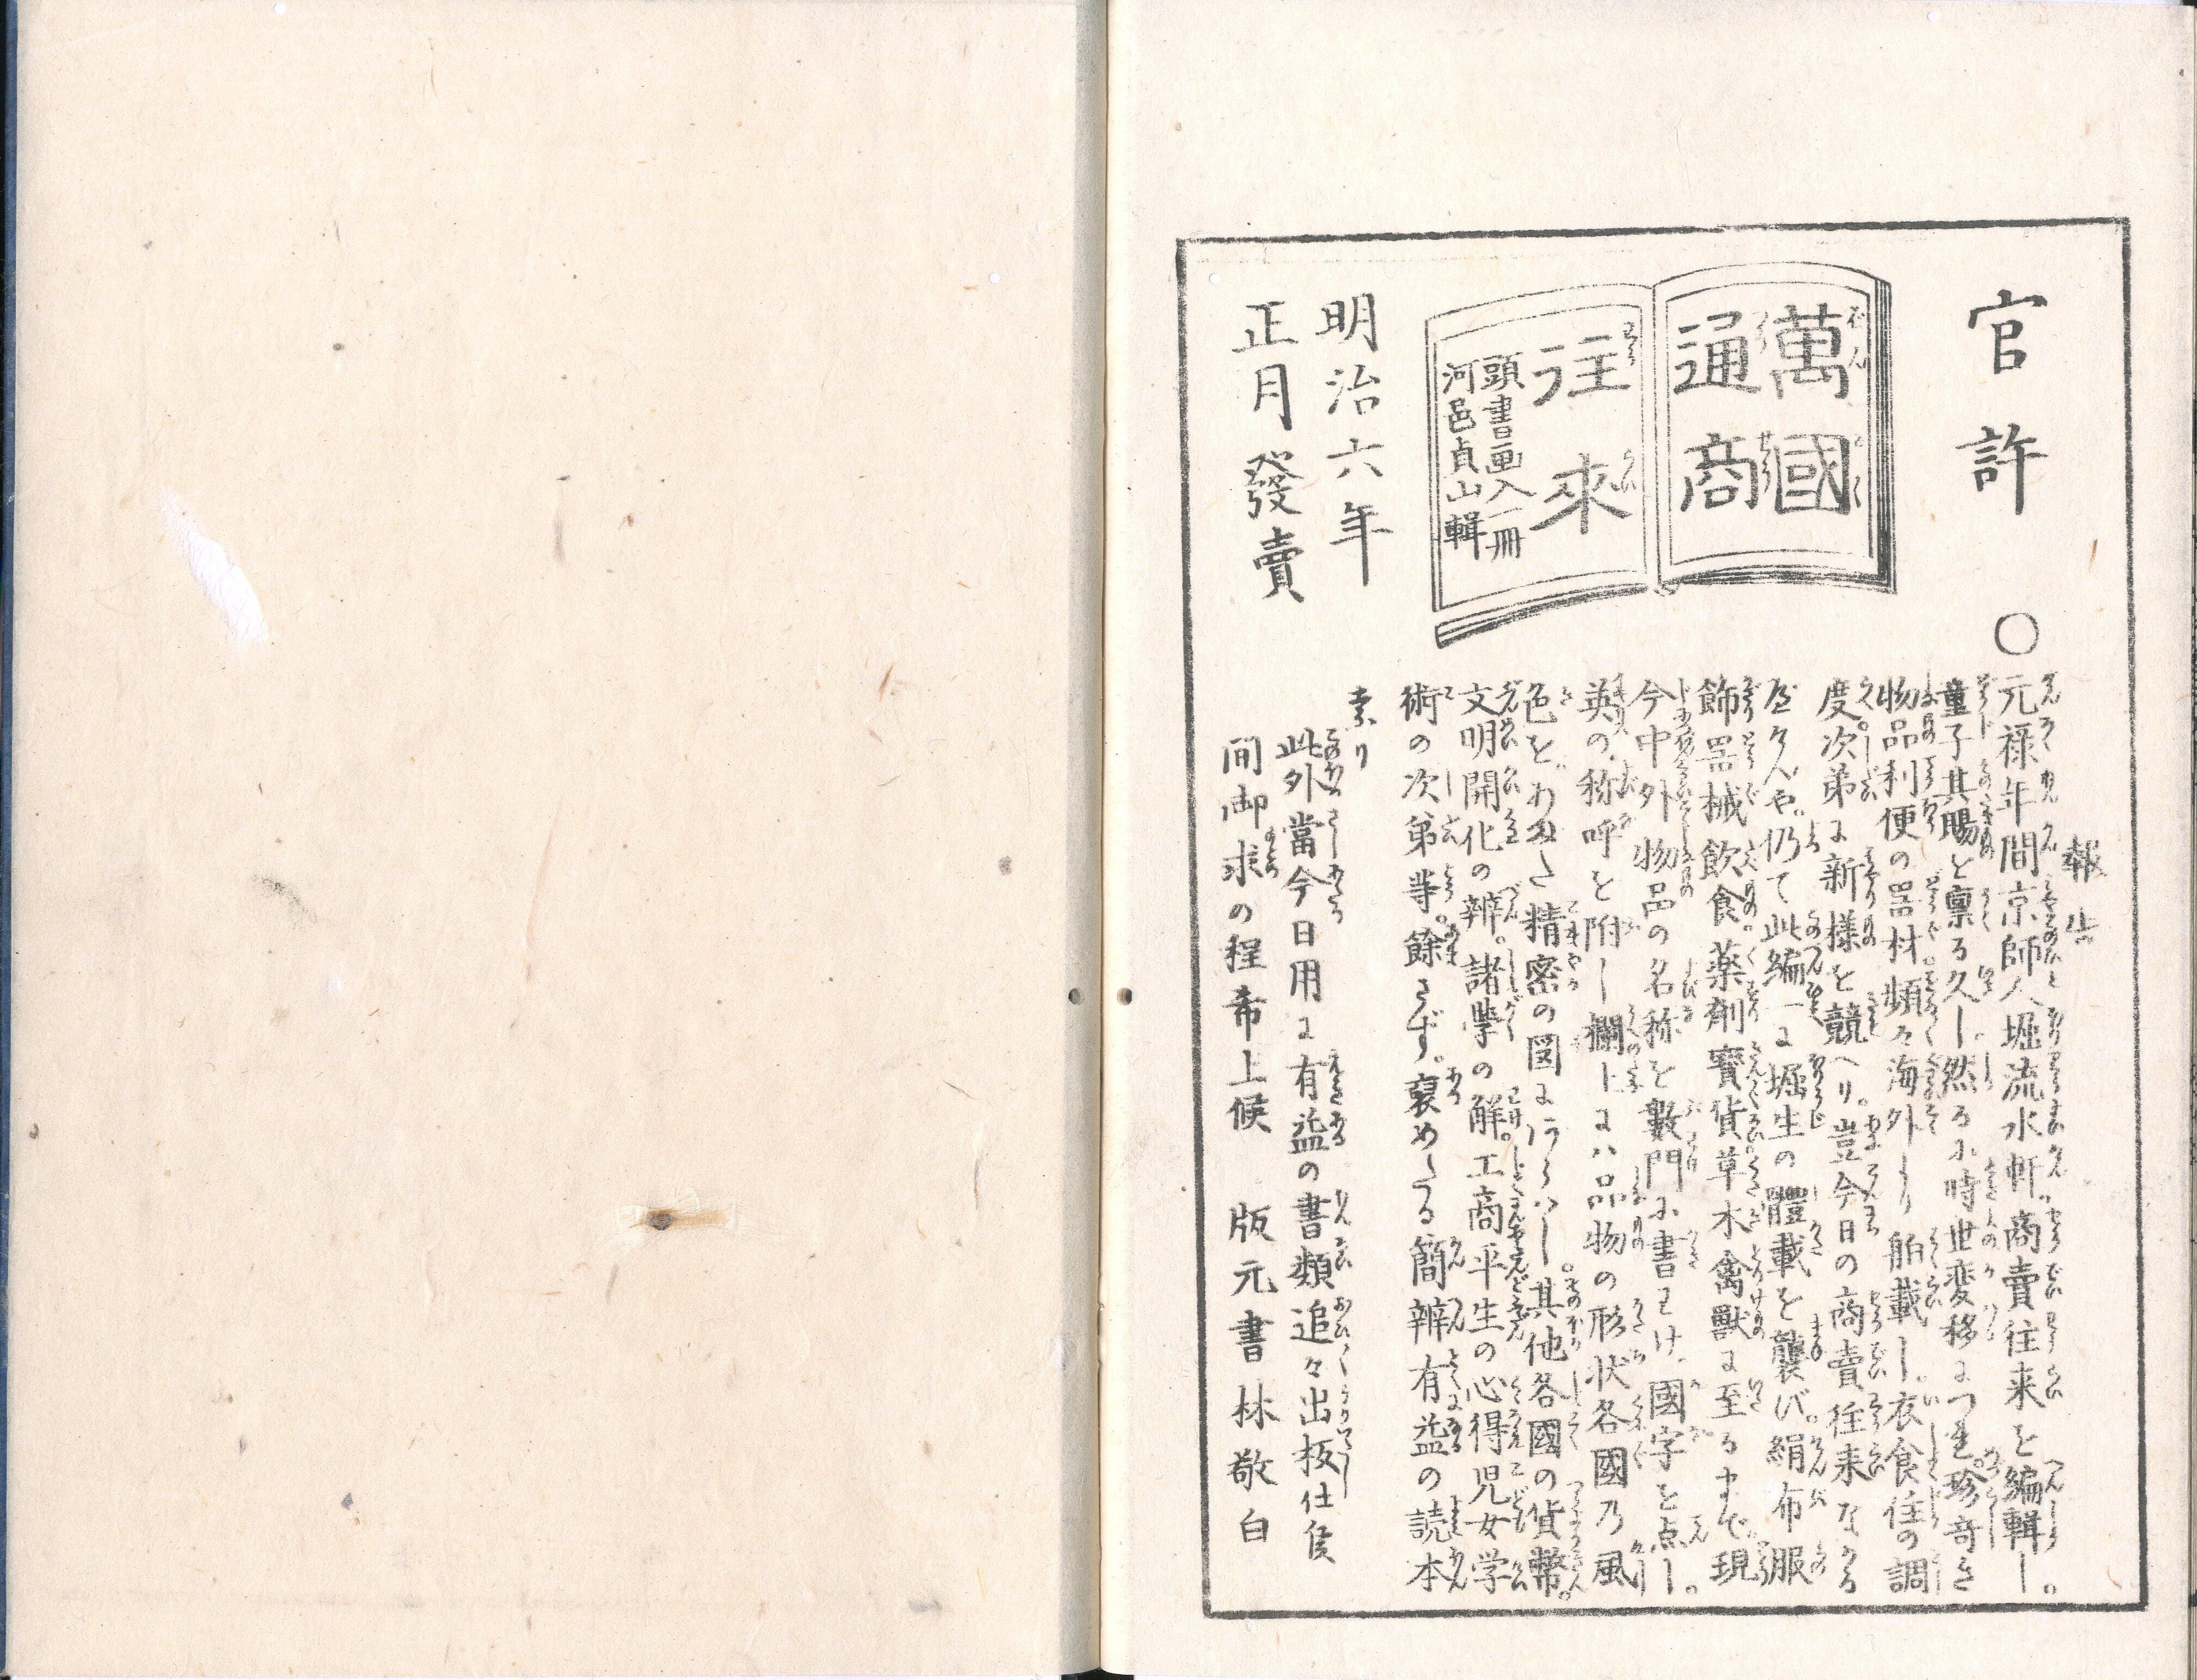 官許
萬國
通商
往來
頭書畫入一冊
河邑貞山輯
明治六年
正月發賣
報告
○元禄年間京師人堀流水軒商賣往来を編輯し。
童子其賜を稟る久し然るに時世変移につれ珍奇き
物品利便の器材頻々海外より舶載し。衣食住の調
度次第に新様を競へり。豈今日の商賣往来なかる
屋けんや。仍て此編一に堀生の體載を襲び。絹布服
飾器械飲食薬剤寳貨草木禽獣に至るまで。現
今中外物品の名称を數門に書わけ。國字を点し。
英の称呼を附し欄上にハ品物の形状各國乃風
色をあぬた精密の図にあらハし。其他各國の貨幣。
文明開化の辨。諸學の解。工商平生の心得児女学
術の次第等。餘さず。裒めたる簡辨有益の読本
奈り
此外當今日用に有益の書類追々出板仕候
間御求の程希上候　版元書林敬白